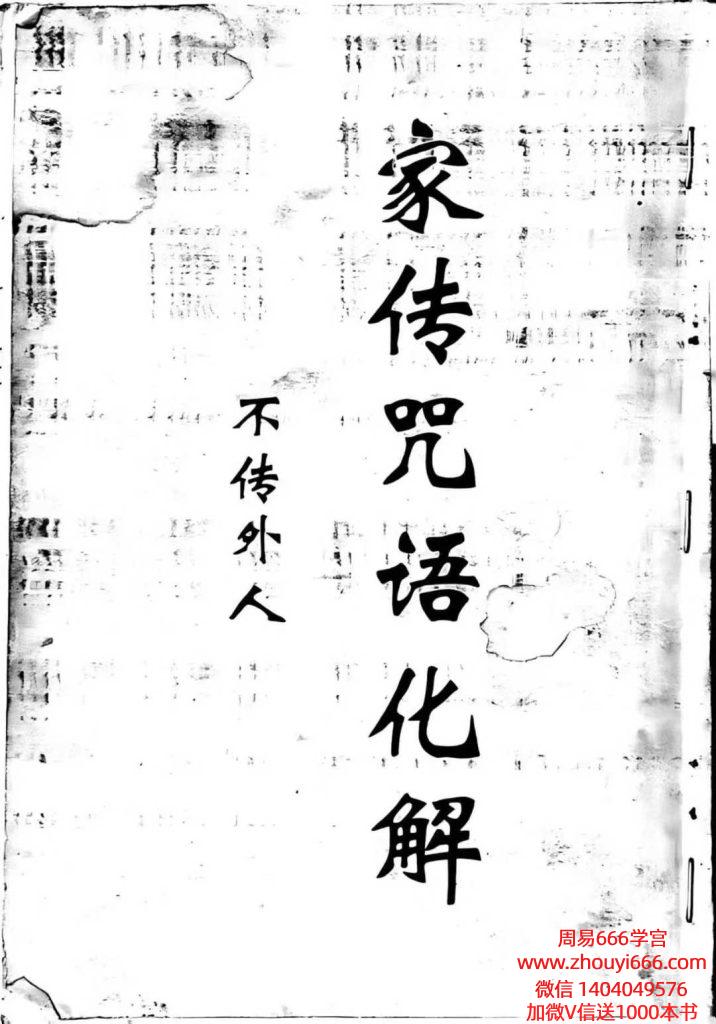 家传咒语化解
不传外人
周易666学宫
www.zhouyi666.com
微信 1404049576
加微V信送1000本书